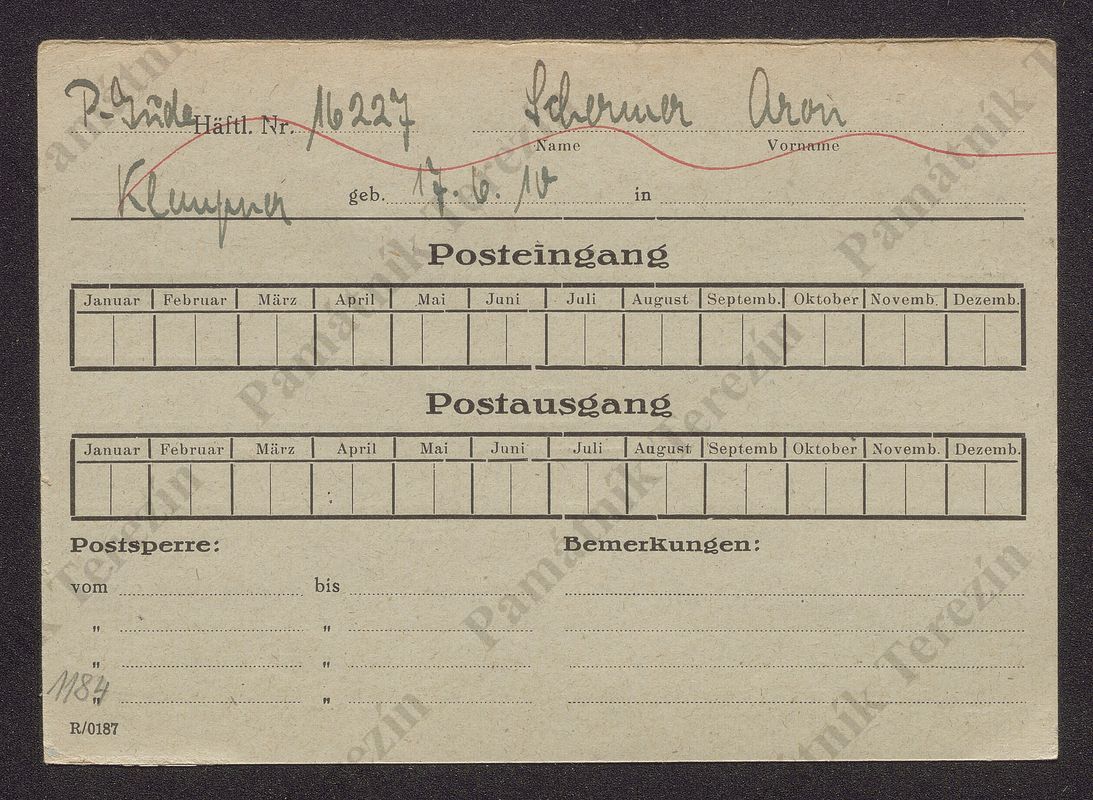 P-Jude Häftl. Nr. 16227 Schermer Aron
Name Vorname
Klempner geb. 17.6.10 in
Posteingang
Januar Februar März April Mai Juni Juli August Septemb. Oktober Novemb. Dezemb.
Postausgang
Januar Februar März April Mai Juni Juli August Septemb Oktober Novemb. Dezemb.
Postsperre: Bemerkungen:
vom bis
" "
" "
" "
1184
R/0187
Památník Terezín